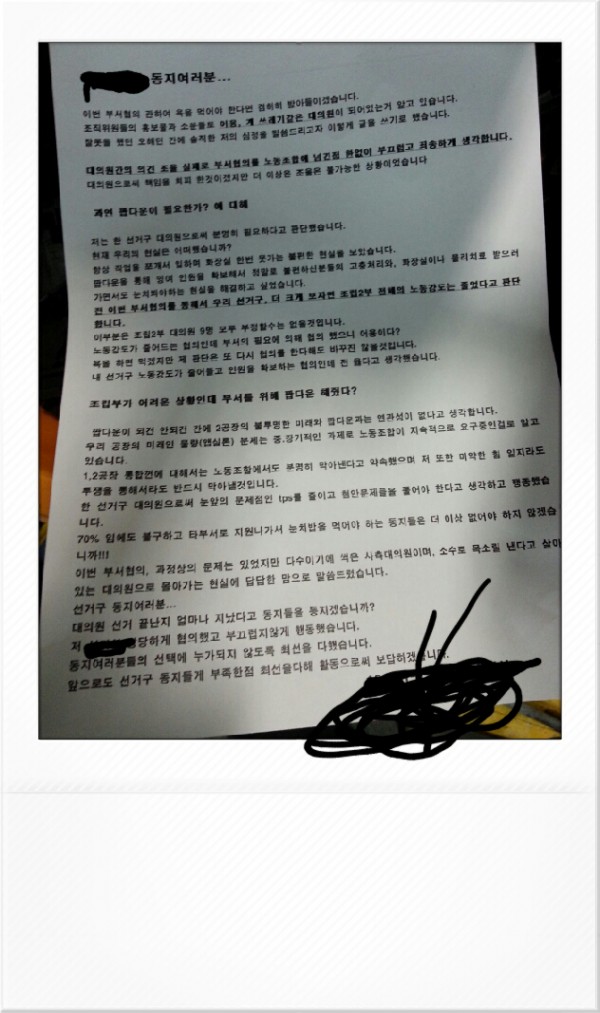 동지여러분...
이번 부서협의 관하여 욕을 먹어야 한다면 겸허히 받아들이겠습니다.
조직위원들의 홍보물과 소문들로 어용, 개 쓰레기같은 대의원이 되어있는거 알고 있습니다.
잘못을 했던 오해던 간에 솔직한 저의 심정을 말씀드리고자 이렇게 글을 쓰기로 했습니다.
대의원간의 의견 조율 실패로 부서협의를 노동조합에 넘긴점 한없이 부끄럽고 죄송하게 생각합니다.
대의원으로써 책임을 회피 한것이겠지만 더 이상은 조율은 불가능한 상황이었습니다
과연 맙다운이 필요한가? 에 대해
저는 한 선거구 대의원으로써 분명히 필요하다고 판단했습니다.
현재 우리의 현실은 어떠했습니까?
항상 작업을 쪼개서 일하며 화장실 한번 못가는 불편한 현실을 보았습니다.
맙다운을 통해 잉여 인원을 확보해서 정말로 불편하신분들의 고충처리와, 화장실이나 물리치료 받으러
가면서도 눈치봐야하는 현실을 해결하고 싶었습니다.
전 이번 부서협의를 통해서 우리 선거구, 더 크게 보자면 조립2부 전체의 노동강도는 줄었다고 판단
합니다.
이부분은 조립2부 대의원 9명 모두 부정할수는 없을것입니다.
노동강도가 줄어드는 협의인데 부서의 필요에 의해 협의 했으니 어용이다?
욕을 하면 먹겠지만 제 판단은 또 다시 협의를 한다해도 바꾸진 않을것입니다.
내 선거구 노동강도가 줄어들고 인원을 확보하는 협의인데 전 옳다고 생각했습니다.
조립부가 어려운 상황인데 부서를 위해 맙다운 해줬다?
맙다운이 되건 안되건 간에 2공장의 불투명한 미래와 맙다운과는 연관성이 없다고 생각합니다.
우리 공장의 미래인 물량(앱실론) 문제는 중,장기적인 과제로 노동조합이 지속적으로 요구중인걸로 알고
있습니다.
1,2공장 통합건에 대해서는 노동조합에서도 분명히 막아낸다고 약속했으며 저 또한 미약한 힘 일지라도
투쟁을 통해서라도 반드시 막아낼것입니다.
한 선거구 대의원으로써 눈앞의 문제점인 tps를 줄이고 현안문제들을 풀어야 한다고 생각하고 행동했습
니다.
70% 임에도 불구하고 타부서로 지원나가서 눈칫밥을 먹어야 하는 동지들은 더 이상 없어야 하지 않겠습
니까!!!
이번 부서협의, 과정상의 문제는 있었지만 다수이기에 썩은 사측대의원이며, 소수로 목소릴 낸다고 살아
있는 대의원으로 몰아가는 현실에 답답한 맘으로 말씀드렸습니다.
선거구 동지여러분...
대의원 선거 끝난지 얼마나 지났다고 동지들을 등지겠습니까?
저 당하게 협의했고 부끄럽지않게 행동했습니다.
동지여러분들의 선택에 누가되지 않도록 최선을 다했습니다.
앞으로도 선거구 동지들게 부족한점 최선을다해 활동으로써 보답하겠습니다.